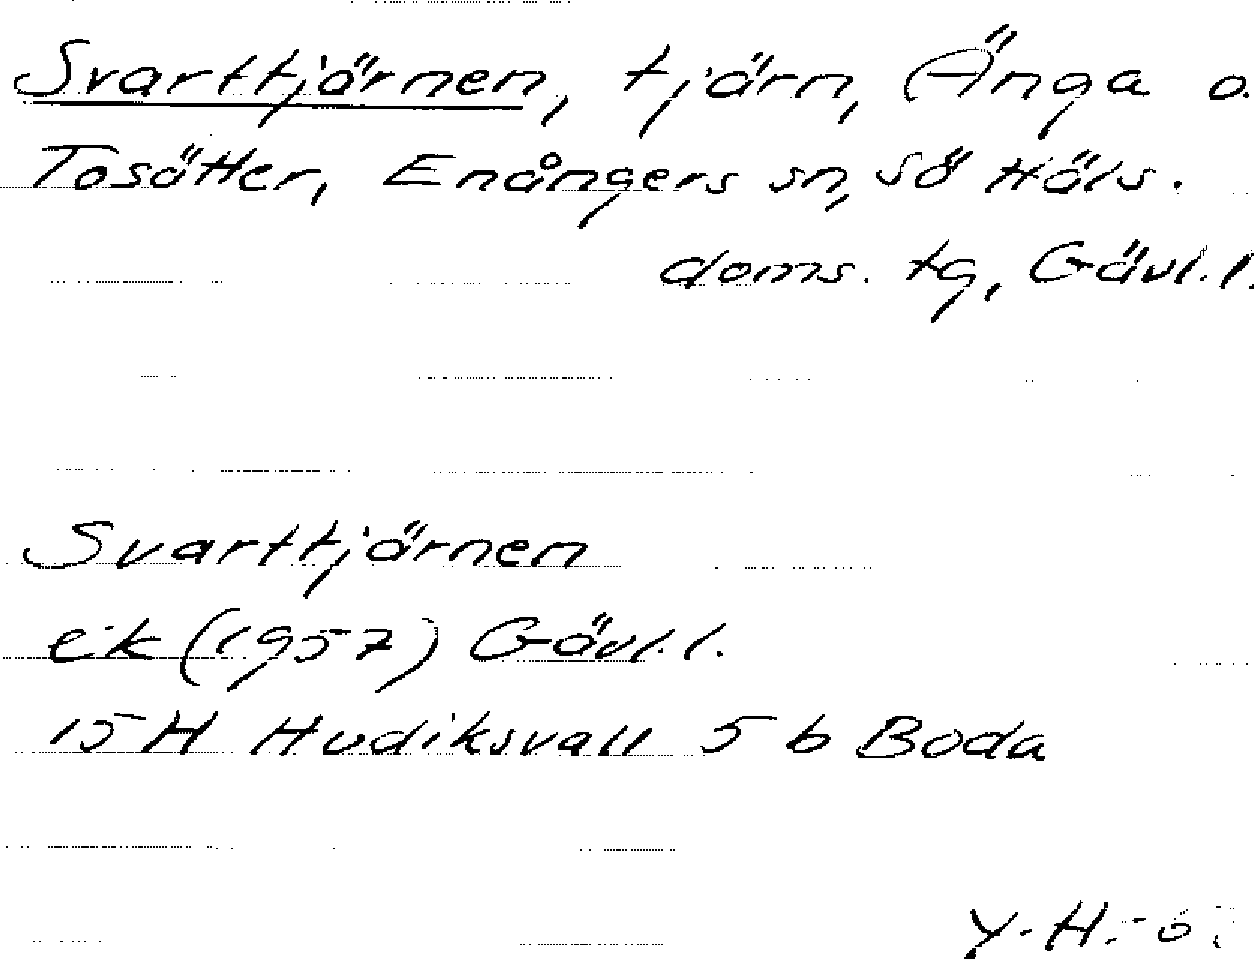 Svarttjärnen, tjärn, Änga o.
Tosätter, Enångers sn, Sö Häls.
doms. tg, Gävl. l.
Svarttjärnen
ek (1957) Gävl. l.
15 H Hudiksvall 5 b Boda
Y.H.-ö.